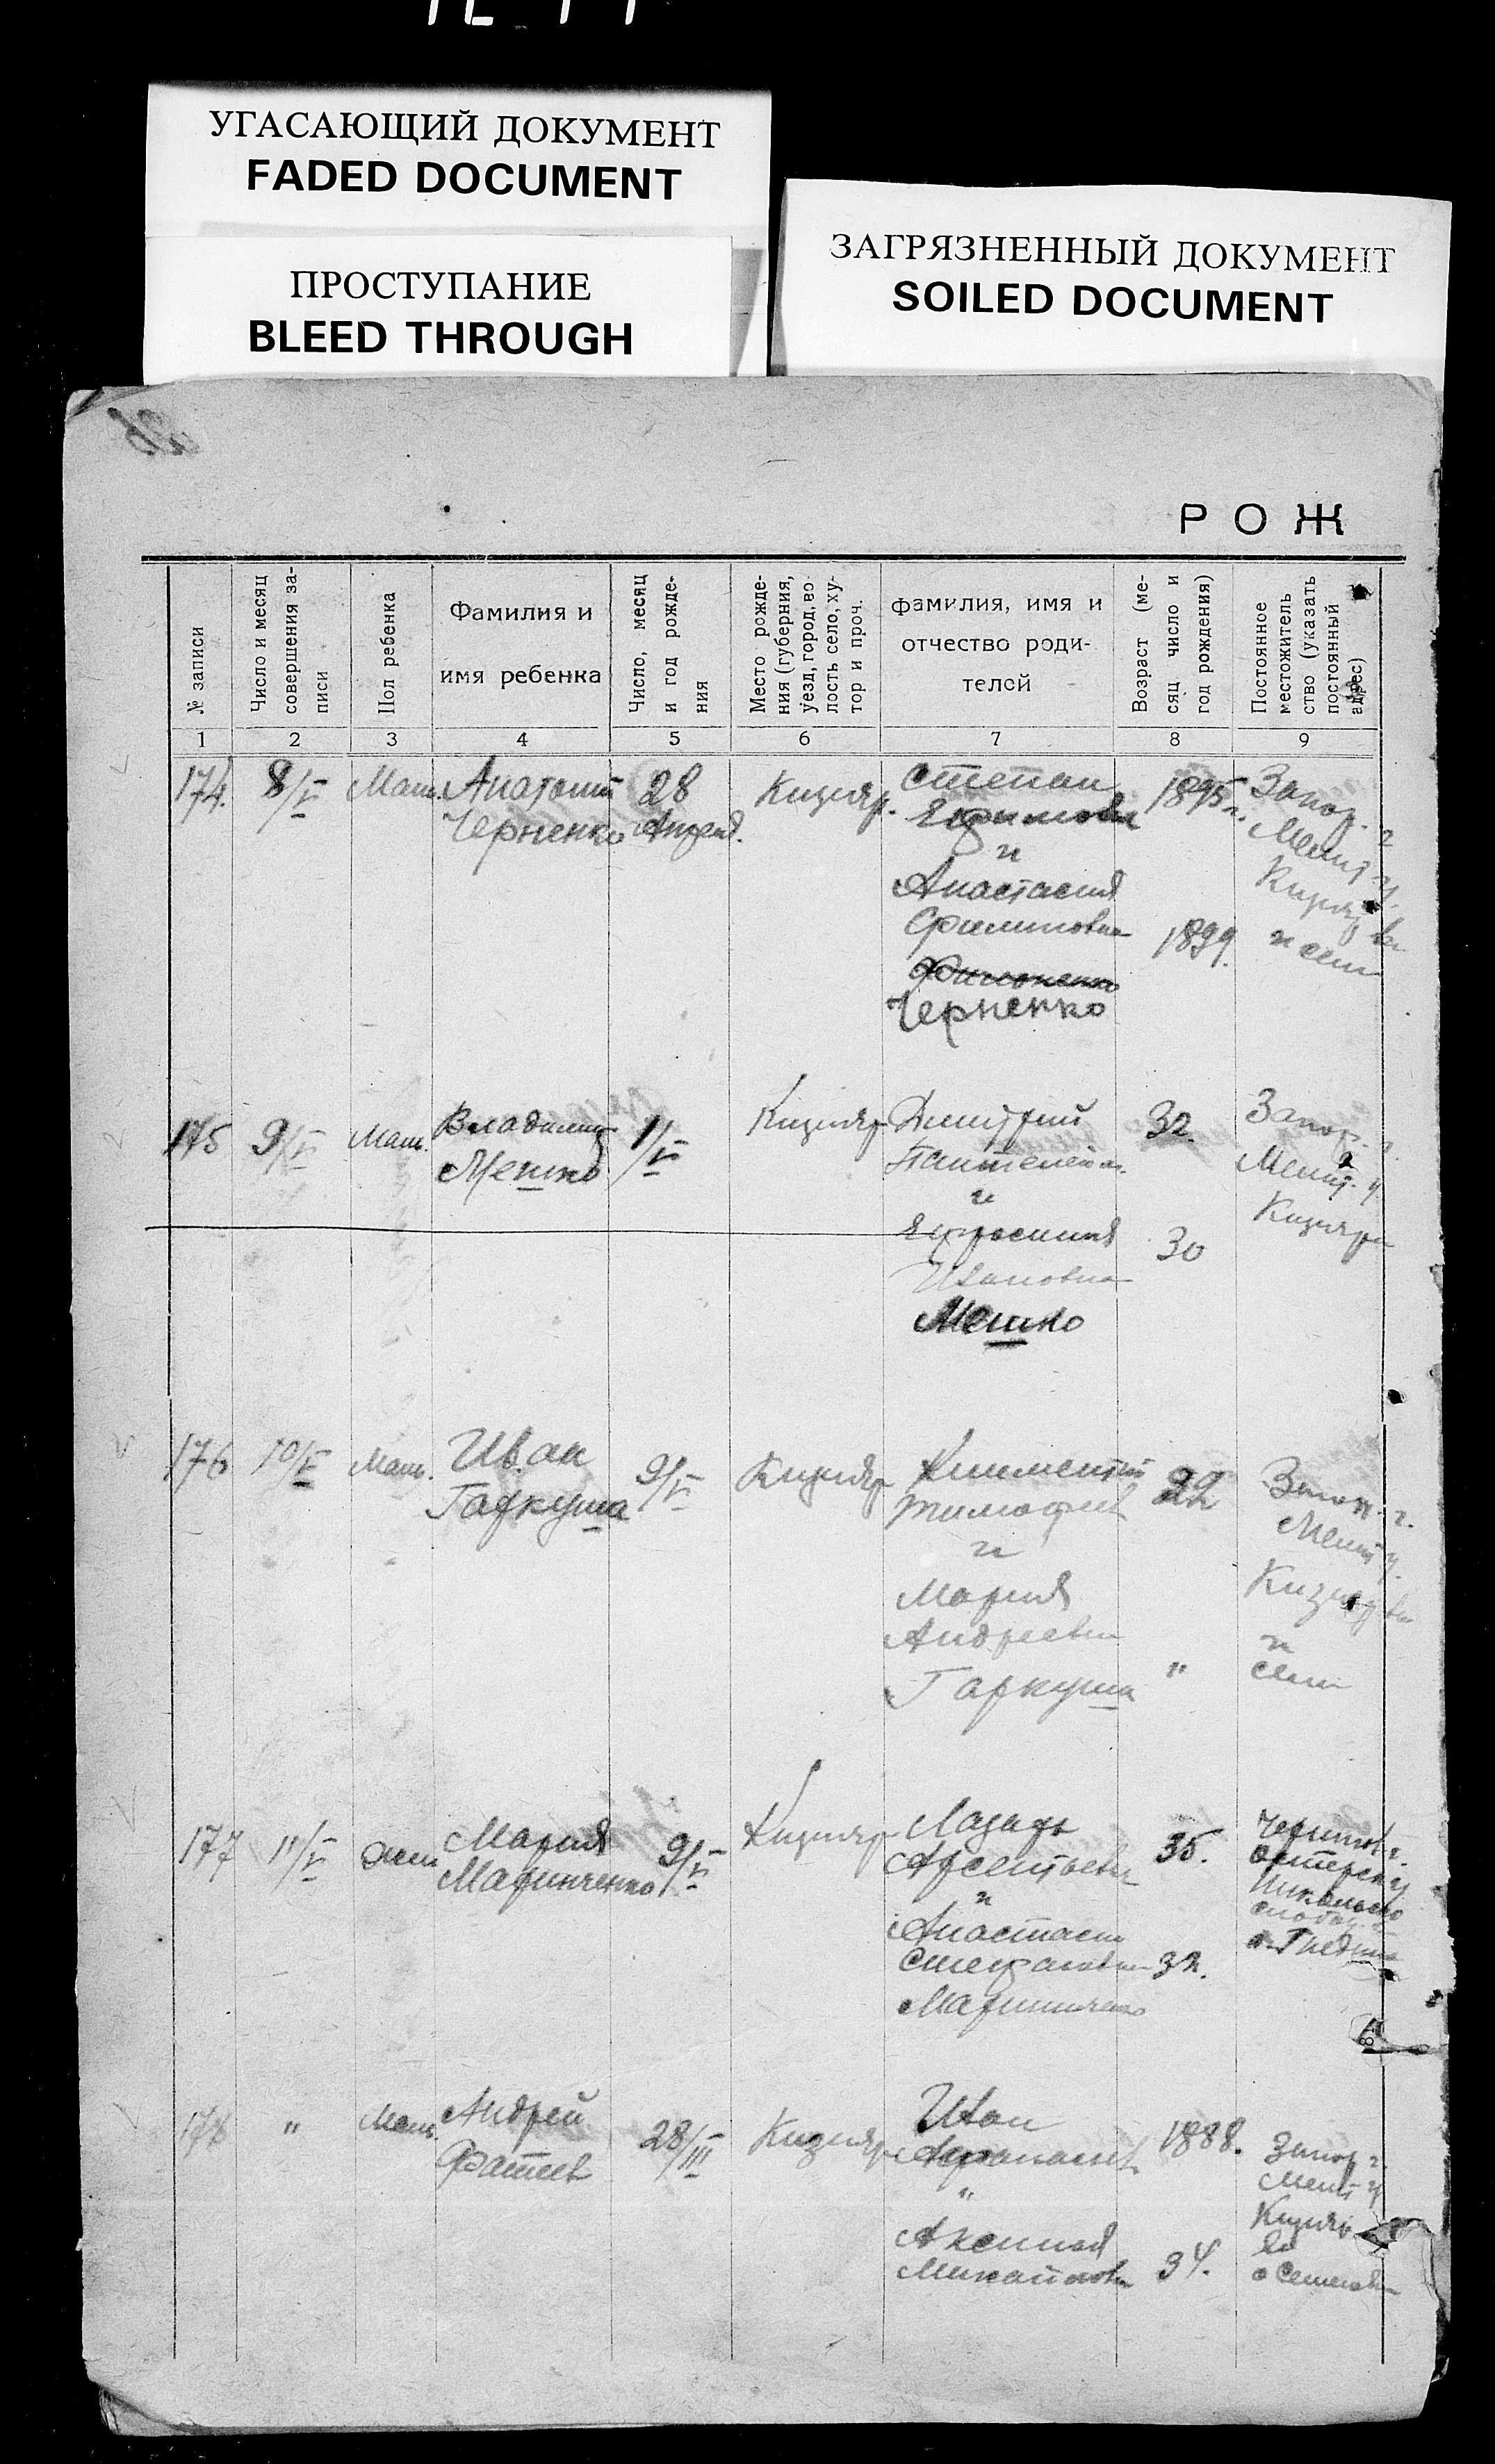 УГАСАЮЩИЙ ДОКУМЕНТ
FADED DOCUMENT
ПРОСТУПАНИЕ
BLEED THROUGH
ЗАГРЯЗНЕННЫЙ ДОКУМЕНТ
SOILED DOCUMENT
РОЖ
№ записи
Число и месяц
совершения за-
писи
Пол ребенка
Фамилия и
имя ребенка
Число, месяц
и год рожде-
ния
Место рожде-
ния (губерния,
уезд, город, во
лость село, ху-
тор и проч.
фамилия, имя и
отчество роди-
телей
Возраст (ме-
сяц число и
год рождения)
Постоянное
местожитель
ство (указать
постоянный
адрес)
1 2 3 4 5 6 7 8 9
174. 8/V
Анатолий
Черненко
28
Апрел.
Кизияр.
Степан
Ефимов
и
Анастасия
Филиповна
Черненко
1895 г.
1899.
Запор. г
Мелит. у.
Кизияр
175 9/V
Владимир
Мешко
1/V
Кизияр
Дмитрий
Пантелейм.
и
Ефросиния
Ивановна
Мешко
32.
30
Запор. г.
Мелит. у.
Кизияр
176 10/V
Иван
Гаркуша
9/V
Кизияр
Климентий
Тимофеев
и
Мария
Андреевна
Гаркуша
"
Запор. г.
Мелит у.
Кизияр
и
177 11/V
Жен
Мария
Маринченко
9/V
Кизияр
Лазарь
Арсентьев
и
Анастасия
Стефановна
Маринченко
35.
32.
Чернигов г.
Остерск у
178 "
Андрей
Фатеев
28/III
Кизияр
Иван
Афанасьев
"
Аксиния
Михайловн
1888.
34.
Запор г.
Мелит у
Кизияр